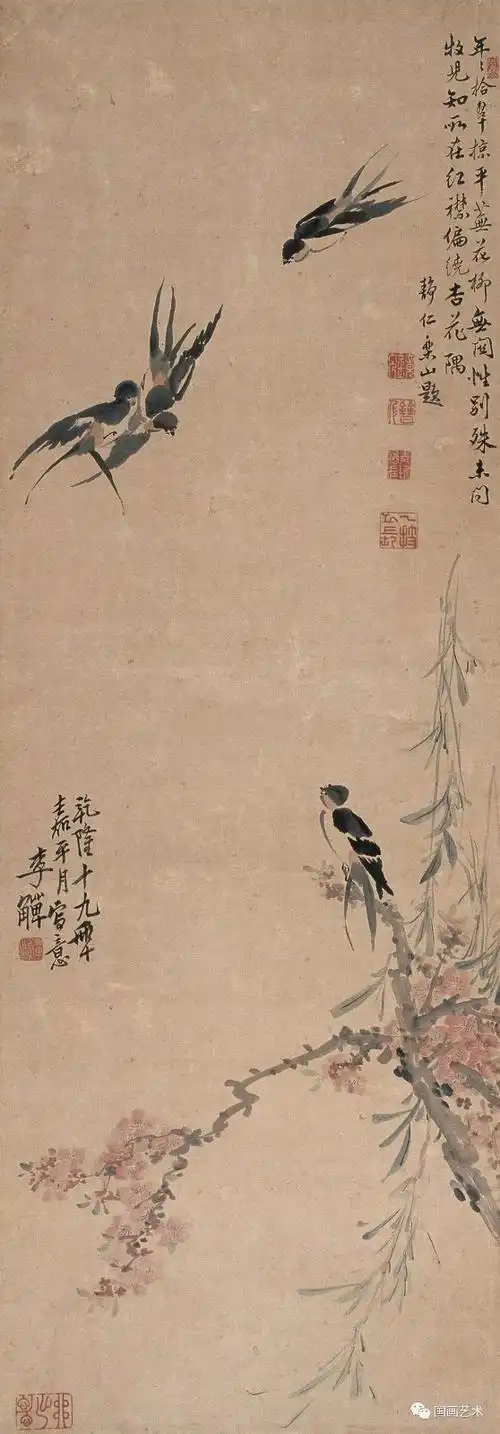 年〻拾翠掠平蕪花柳無関性別殊未問
牧兒知所在紅襟偏繞杏花隅
靜仁山題
乾隆十九年
嘉平月寫意
李觶
国画艺术